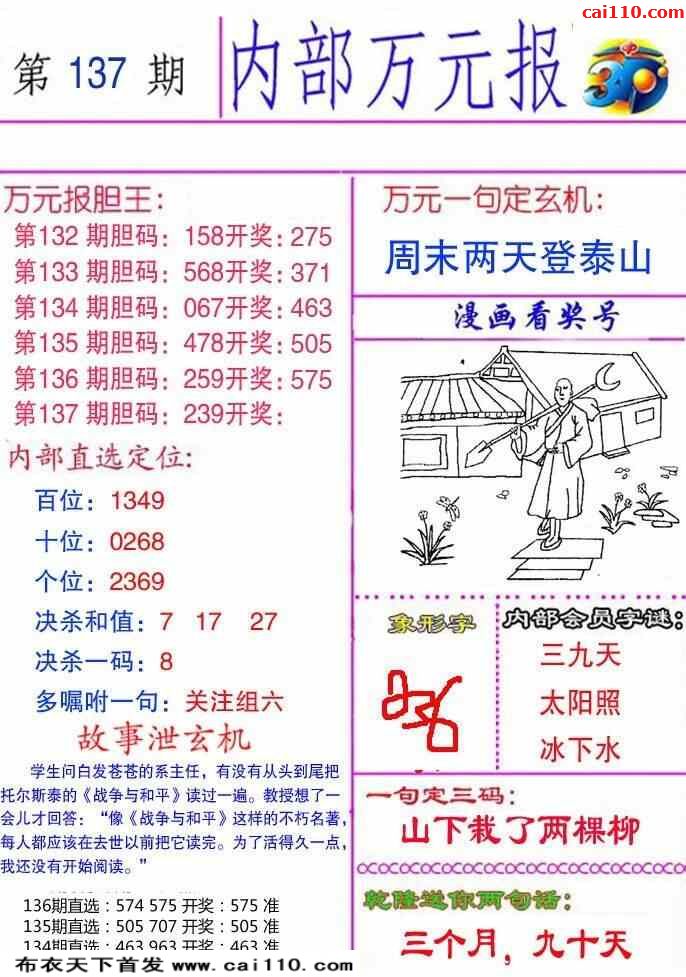 cai110.com
第 137 期
内部万元报
3D
万元报胆王：
第132 期胆码：158开奖：275
第133 期胆码：568开奖：371
第134 期胆码：067开奖：463
第135 期胆码：478开奖：505
第136 期胆码：259开奖：575
第137 期胆码：239开奖：
内部直选定位：
百位：1349
十位：0268
个位：2369
决杀和值：7 17 27
决杀一码：8
多嘱咐一句：关注组六
故事泄玄机
学生问白发苍苍的系主任，有没有从头到尾把
托尔斯泰的《战争与和平》读过一遍。教授想了一
会儿才回答：“像《战争与和平》这样的不朽名著，
每人都应该在去世以前把它读完。为了活得久一点，
我还没有开始阅读。”
136期直选：574 575 开奖：575 准
135期直选：505 707 开奖：505 准
134期直选：463 963 开奖：463 准
布衣天下首发 www.cai110.com
万元一句定玄机：
周末两天登泰山
漫画看奖号
象形字
内部会员字谜：
三九天
太阳照
冰下水
一句定三码：
山下栽了两棵柳
乾隆送你两句话：
三个月，九十天